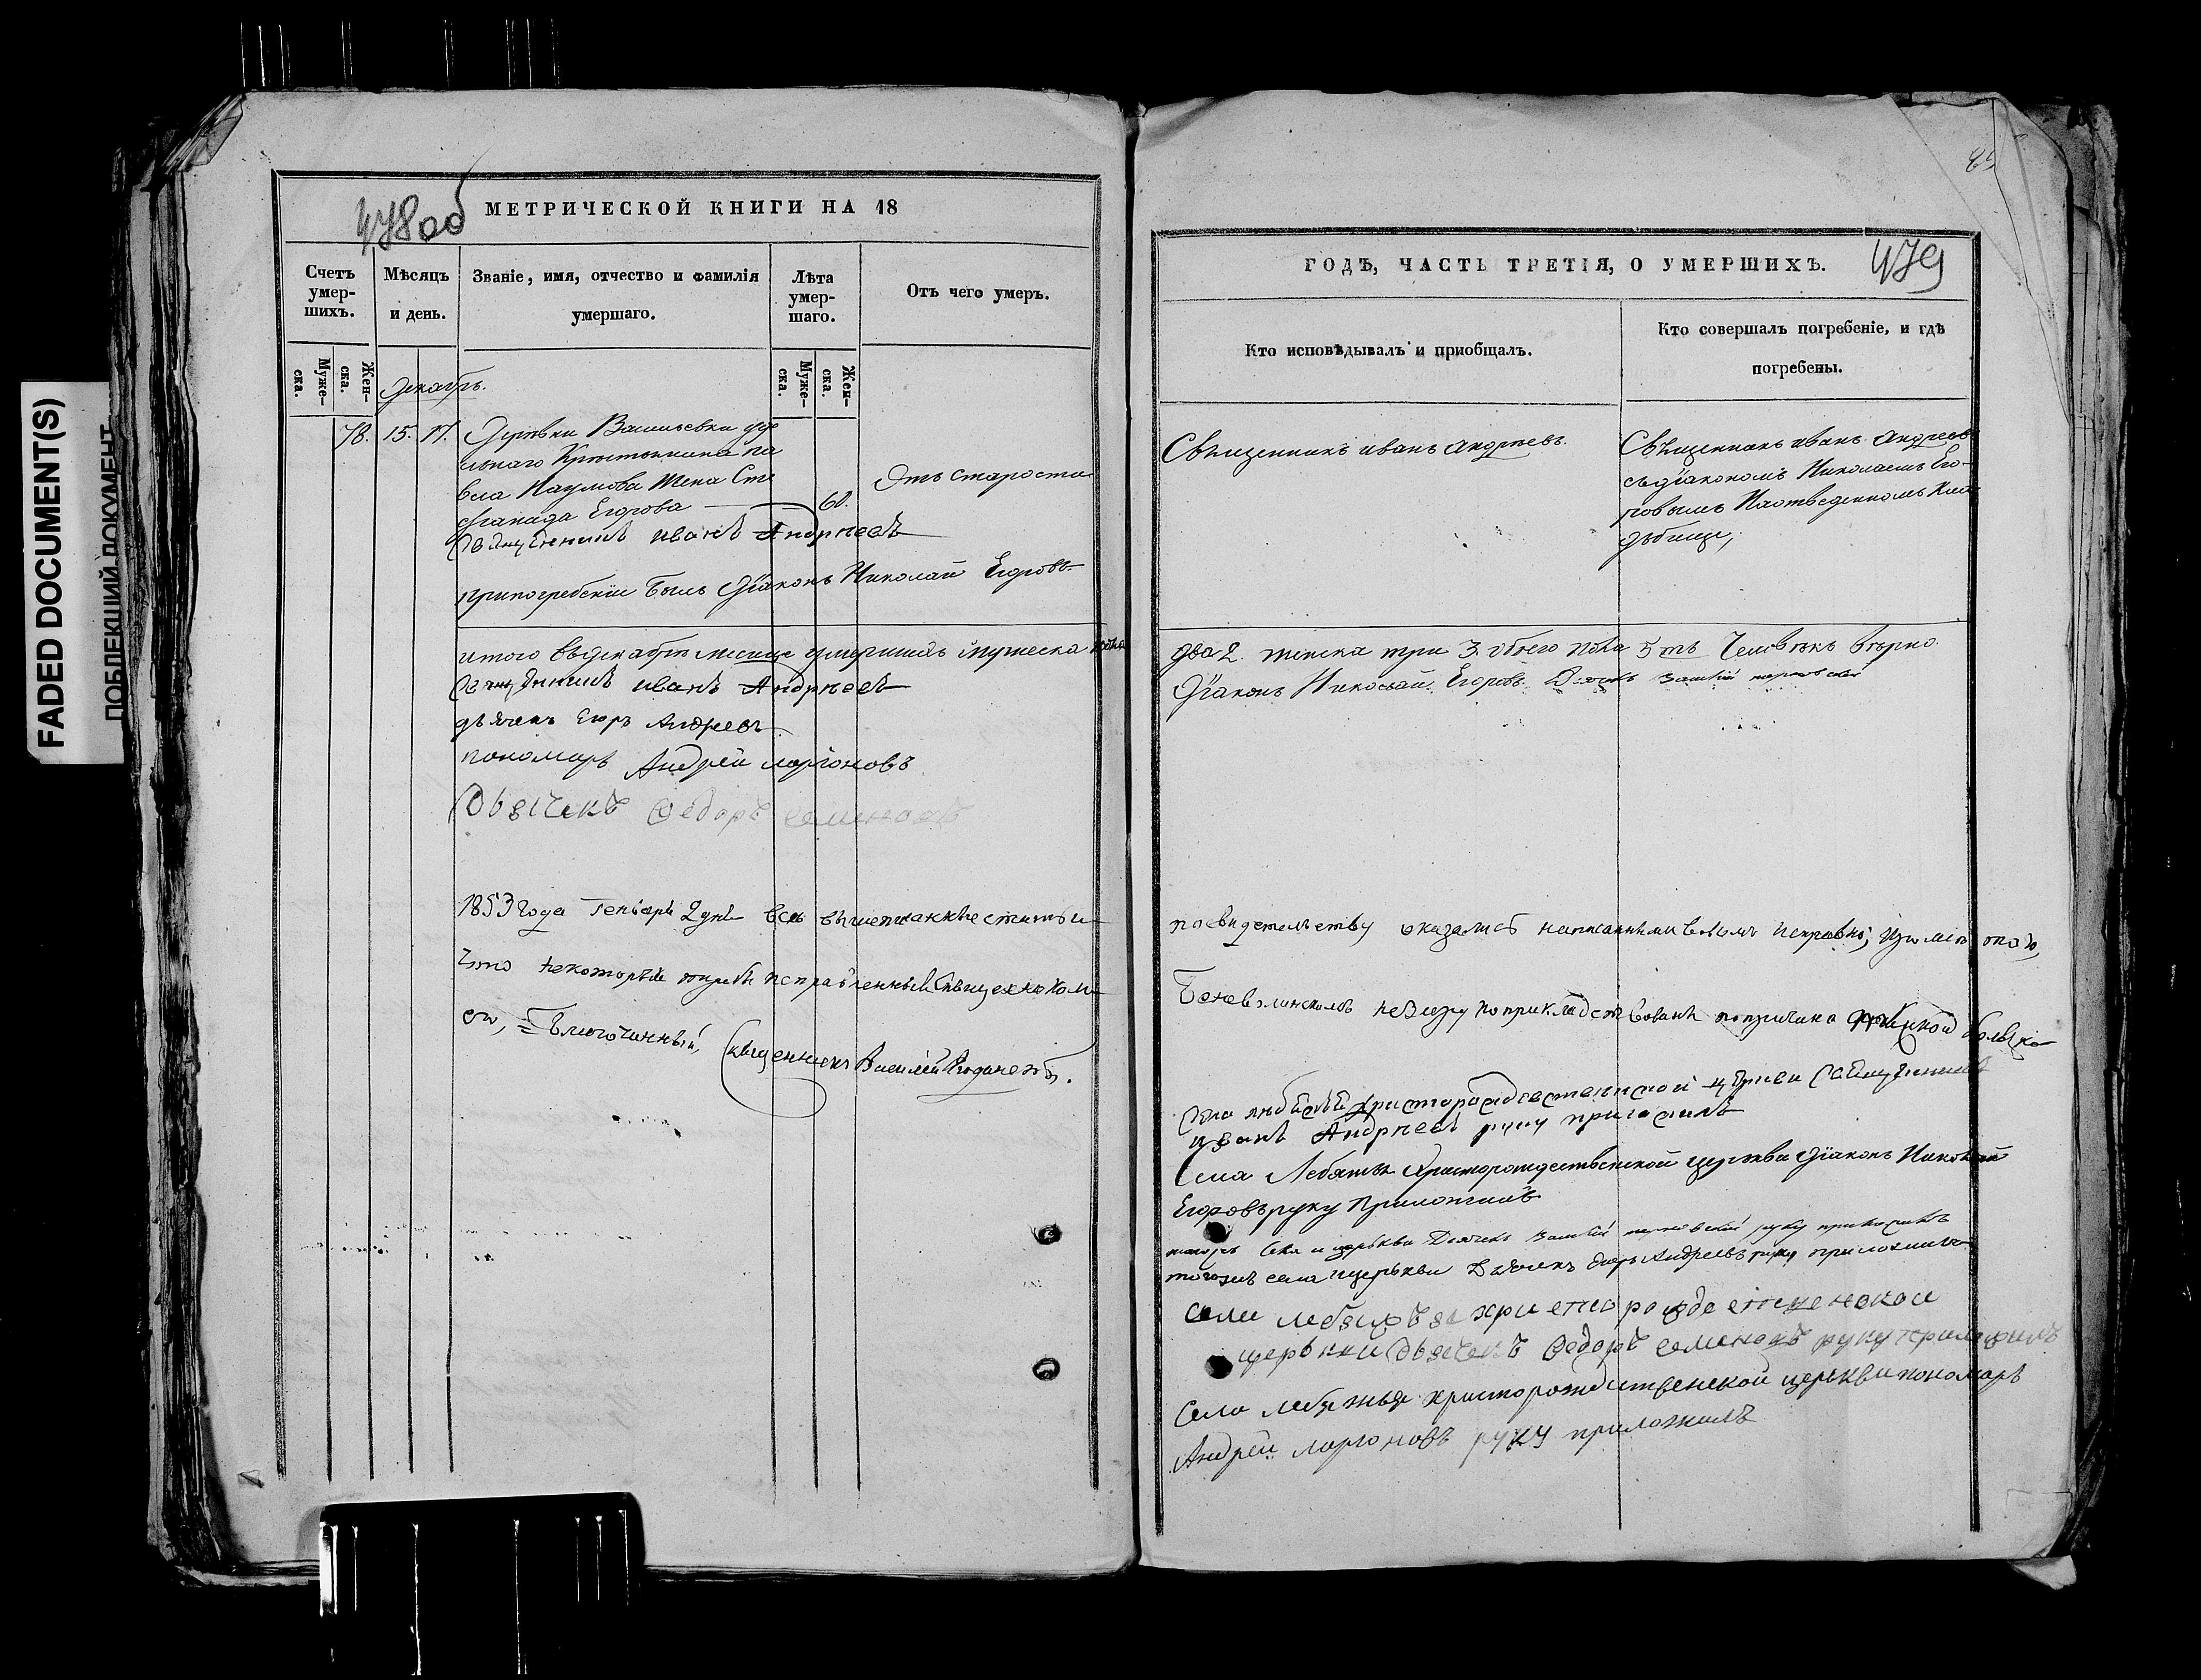 FADED DOCUMENT(S)
ПОБЛЕКШИЙ ДОКУМЕНТ
478 об
МЕТРИЧЕСКОЙ КНИГИ НА 18
Счетъ умер-шихъ.
Мѣсяцъ и день.
Званіе, имя, отчество и фамилія умершаго.
Лѣта умер-шаго.
Отъ чего умеръ.
Муже-ска.
Жен-ска.
Муже-ска.
Жен-ска.
Декабрь.
78. 15. 17. Деревни Васильевки удѣ
льнаго Крестьянина Па
вла Наумова Жена Сте
фанида Егорова 60. Отъ старости
Священникъ иванъ Андрѣевъ
при погребеніи былъ Діаконъ Николай Егоровъ
итого въ декабрѣ месице умершихъ мужеска пола
Священникъ иванъ Андрѣевъ
дьячекъ Егоръ Андреевъ
пономарь Андрей ларіоновъ
Дьячекъ Федоръ семеновъ
1853 года Генваря 2 дня всѣ вышеписанные статьи
что некоторыя исправленный Священникомъ
Благочинный, Священникъ Василій
479
ГОДЪ, ЧАСТЬ ТРЕТІЯ, О УМЕРШИХЪ.
Кто исповѣдывалъ и приобщалъ.
Кто совершалъ погребеніе, и гдѣ погребены.
Священникъ иванъ андрѣевъ.
Священникъ иванъ андреевъ
съ діакономъ Николаемъ Его-
ровымъ На отведенномъ Кла
дбище,
два 2. женска три 3. обоего пола 5ть Человѣкъ вѣрно.
Діаконъ Николай Егоровъ Дьячекъ
по свидетельству оказались написанными исправно,
руку по причине
Села Христорождественской церкви Священникъ
иванъ Андрѣевъ руку приложилъ
Села Лебяжья Христорождественской церкви Діаконъ Николай
Егоровъ руку Приложилъ
села и церкви Дьячекъ руку приложилъ
тогожъ села и церкви Дьячекъ Егоръ Андреевъ руку приложилъ
села лебяжья христорождественской
церкви Дьячекъ Федоръ семеновъ руку приложилъ
Села лебяжья христорождественской церкви пономарь
Андрей ларіоновъ руку приложилъ